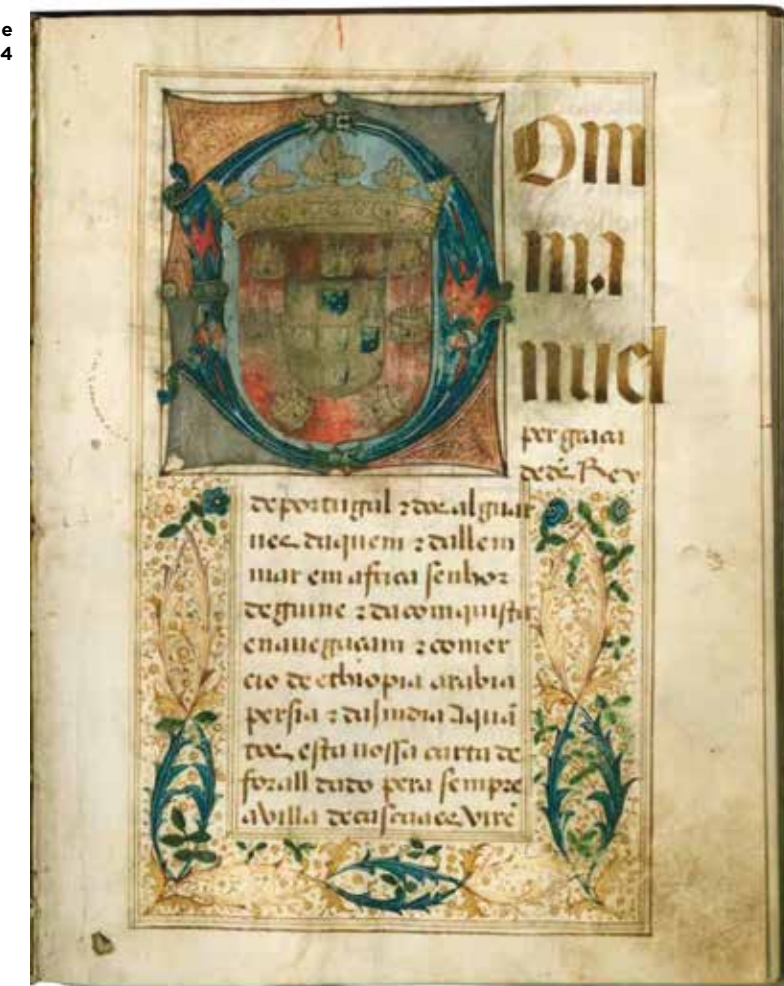 e
4
Dom
ma
nuel
per graça
de dẽ Rey
de portugal ⁊ dos alguar
ues daquem ⁊ dallem
mar em africa senhor
de guine ⁊ da comquista
enauegaçam ⁊ comer
cio de ethiopia arabia
persia ⁊ da Jndia Aquã
tos esta nossa carta de
forall dado pera sempre
avilla de cascaaes virẽ